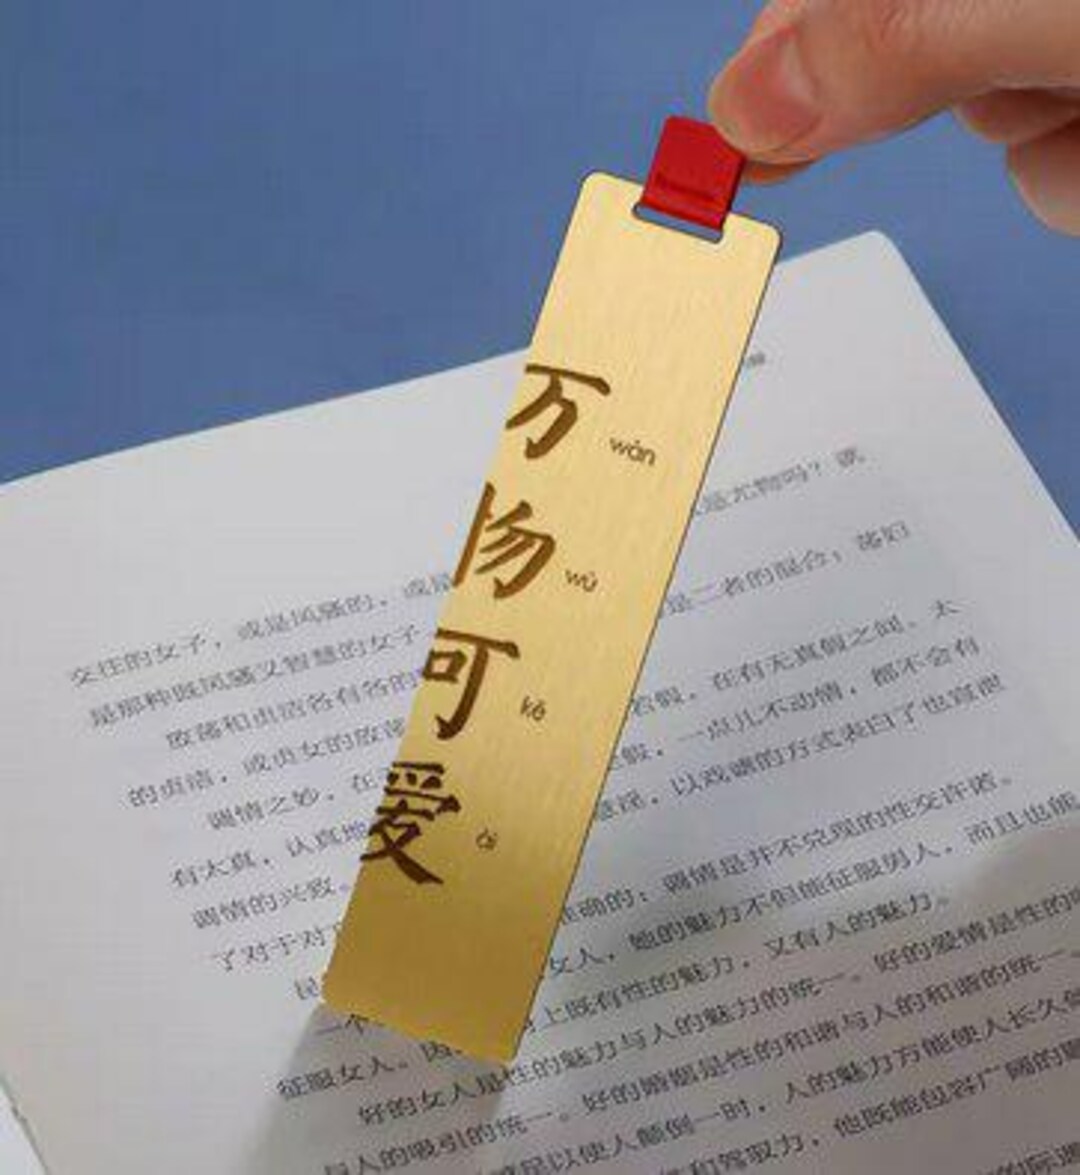 万 wàn
物 wù
可 kě
爱 ài
是尤物吗？或
交往的女子，或是风骚的，或是
是二者的混合；荡妇
是那种既风骚又智慧的女子
若假，在有无真假之间。太
放荡和贞洁各有各的
假，一点儿不动情，都不会有
的贞洁，或贞女的放荡
意淫，以戏谑的方式表白了也宣泄
调情之妙，在
有太真，认真地
准确的：调情是并不兑现的性交许诺。
调情的兴致。
女人，她的魅力不但能征服男人，而且也能
了对于对
上既有性的魅力，又有人的魅力。
征服女人。因
性的魅力与人的魅力的统一。好的爱情是性的
好的女人是性的魅力与人的魅力的统一。
与人的吸引的统一。好的婚姻是性的和谐与人的和谐的统一。
足以使人颠倒一时，人的魅力方能使人长久
和驾驭力，他既能包容广阔的